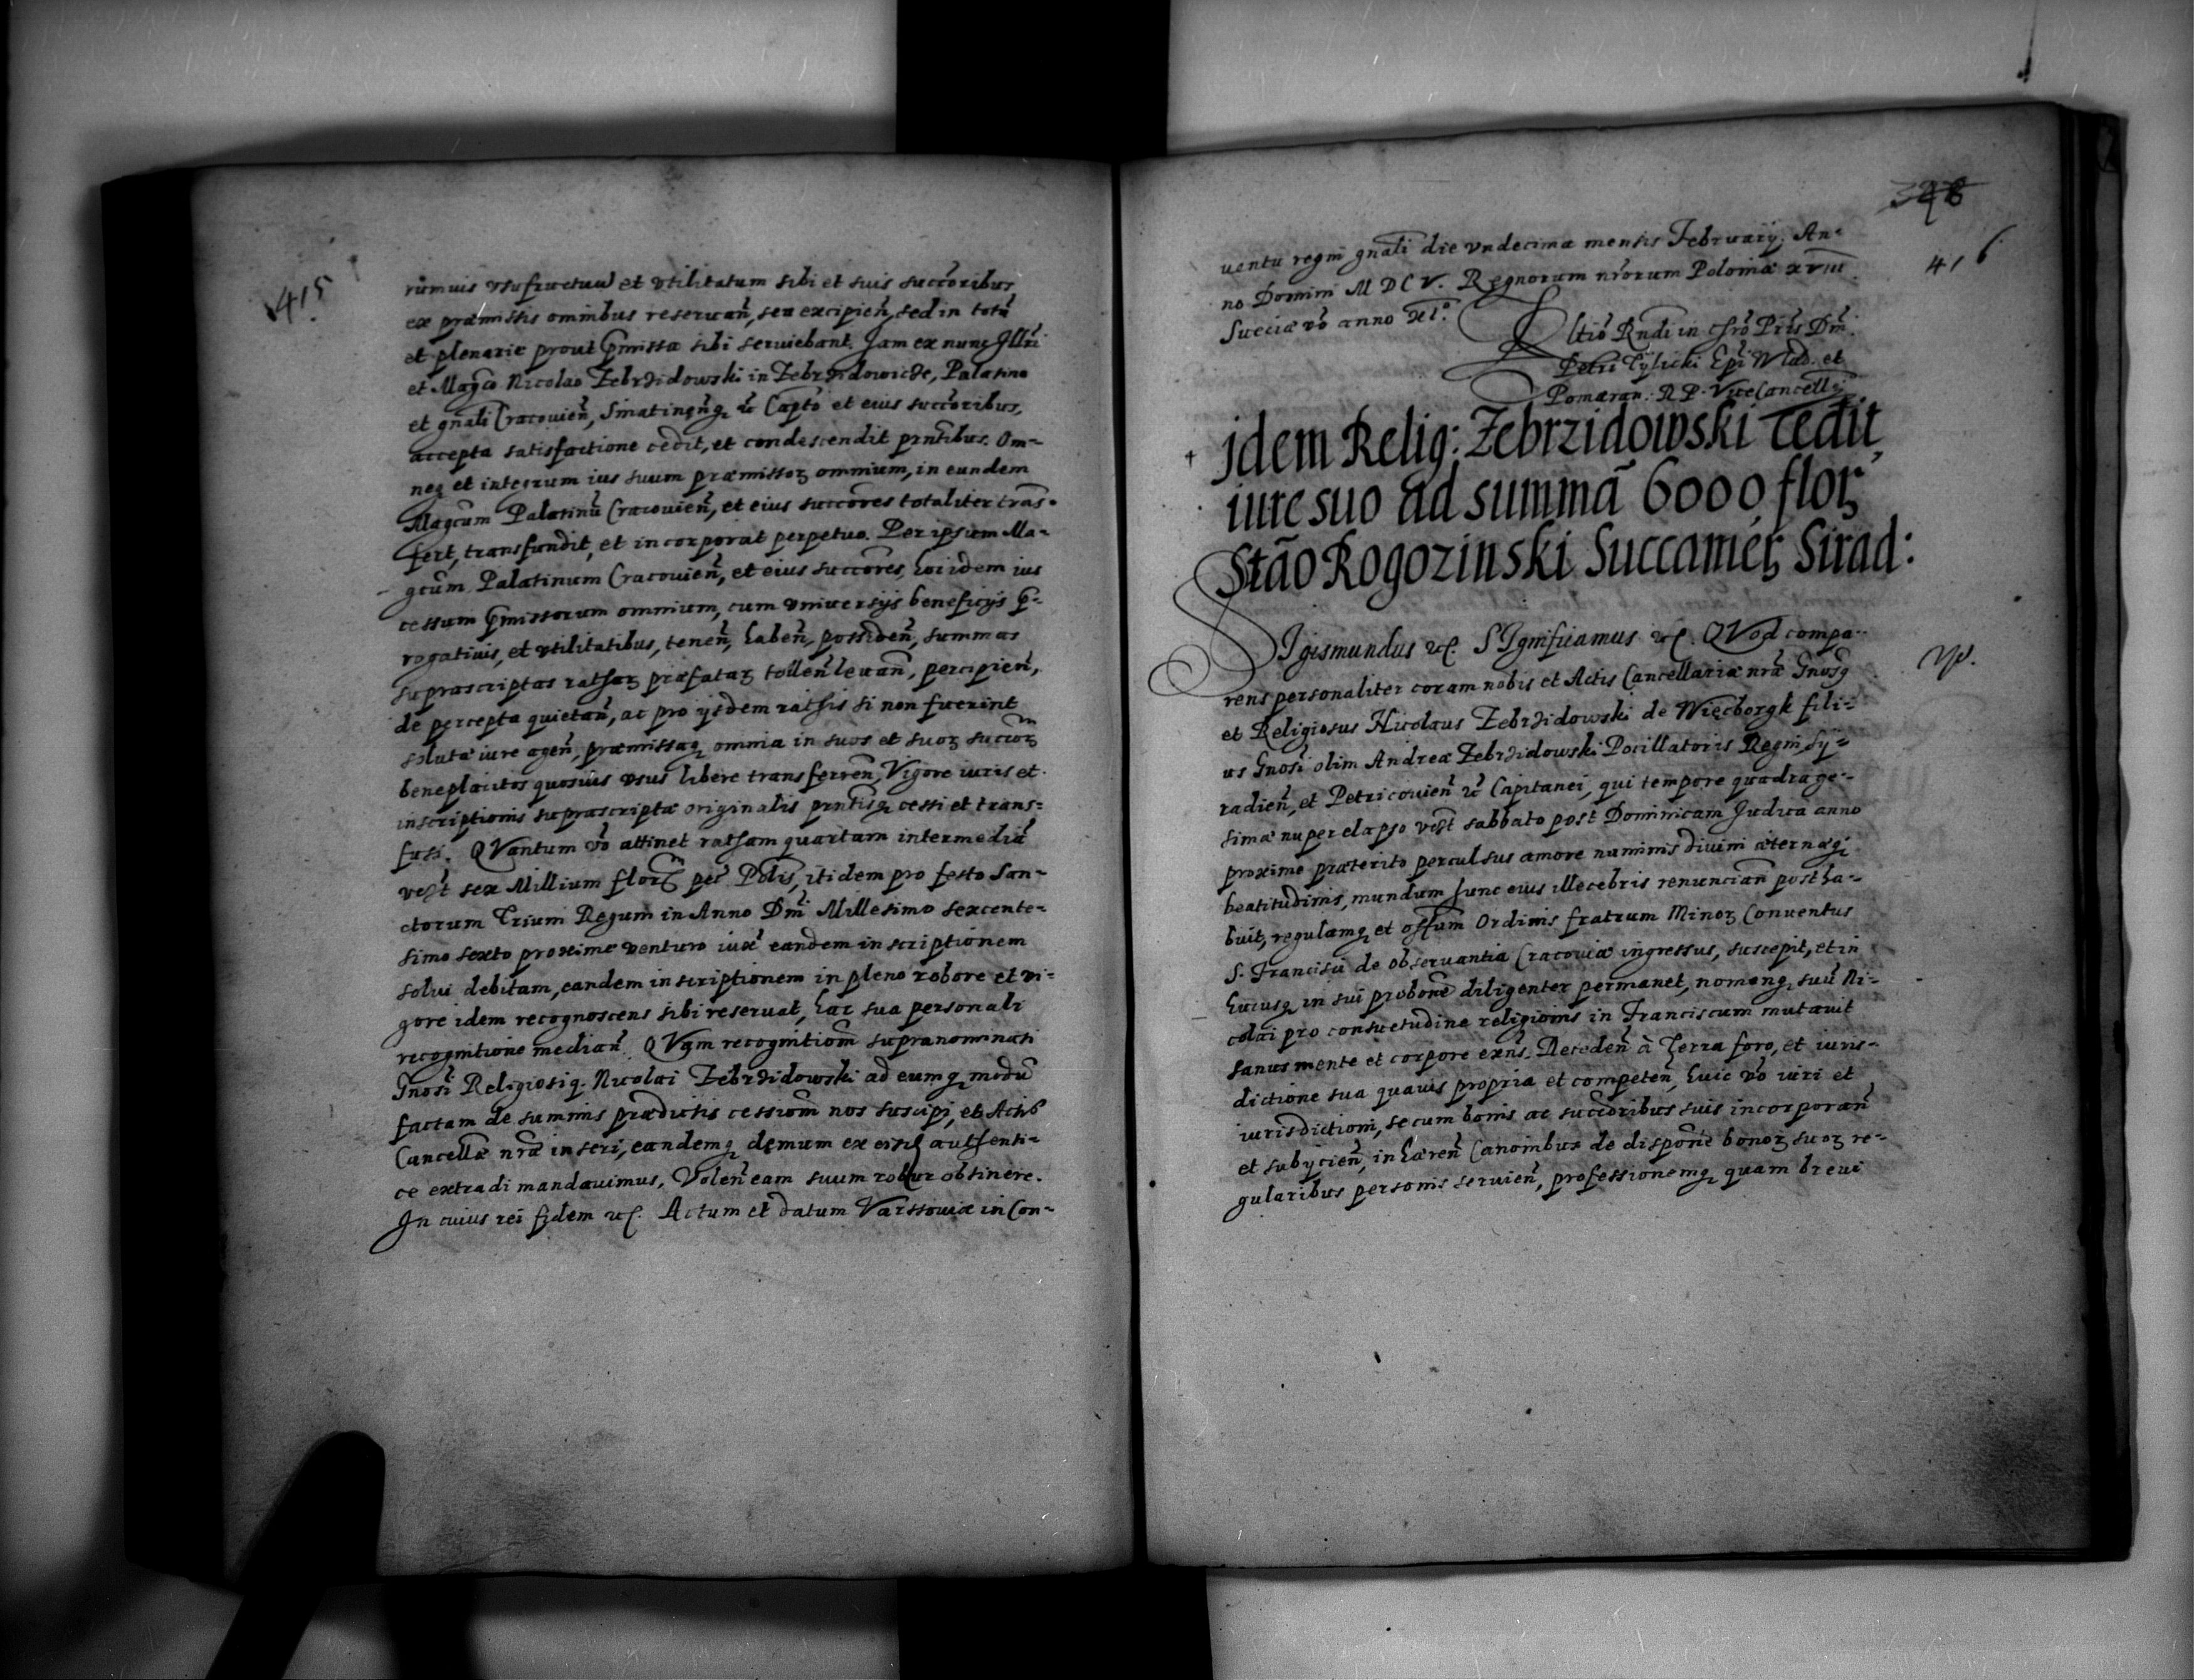 415
rumuis vsufructuũ et vtilitatum sibi et suis succõribus
ex præmissis omnibus reseruañ, seu excipieñ, sed in totũ
et plenarie prout p̃missa sibi seruiebant. Jam ex nunc Jllri
et Magco Nicolao Zebrzidowski in Zebrzidowicze, Palatino
et gnãli Cracouieñ, Capto et eius succõribus,
accepta satisfactione cedit, et condescendit pñtibus. Om-
neq et integrum ius suum præmissoꝝ omnium, in eundem
Magcum Palatinũ Cracouieñ, et eius succõres totaliter trãs-
fert, transfundit, et incorporat perpetuo. Per ipsum Ma-
gcũm Palatinum Cracouieñ, et eius succõres, hoc idem ius
cessum p̃missorum omnium, cum vniuersijs beneficijs p̃-
rogatiuis, et vtilitatibus, teneñ, habeñ, possideñ, summas
suprascriptas rathaꝝ præfataꝝ tolleñ leuañ, percipieñ,
de percepta quietañ, ac pro ijsdem rathis si non fuerint
solutæ iure ageñ, præmissaq omnia in suos et suoꝝ succoꝝ
beneplacitos quosuis vsus libere transferreñ, Vigore iuris et
inscriptionis suprascriptæ originalis pñtisq cessi et trans-
fusi. QVantum võ attinet ratham quartam intermediã
vesz̃t sex Millium floꝝ per Polis, itidem pro festo San-
ctorum Trium Regum in Anno Dm̃i Millesimo sexcente-
simo sexto proxime venturo iuxẽ eandem inscriptionem
solui debitam, eandem inscriptionem in pleno robore et vi-
gore idem recognoscens sibi reseruat, hac sua personali
recognitione mediañ. QVam recognitiom̃ supranominati
Gnosi Religiosiq. Nicolai Zebrzidowski ad eumq modũ
factam de summis prædictis cessiom̃ nos suscipi, et Actis
Cancellæ nræ inseri, eandemq demum ex eisd authenti-
ce extradi mandauimus, Voleñ eam suum robur obtinere.
In cuius rei fidem etc. Actum et datum Varssouiæ in Con-
398
416
uentu regni gnãli die vndecima mensis February. An-
no Domini MDCV. Regnorum nrorum Poloniæ XVIII
Sueciæ võ anno XI.
Rndi in Chrõ Prĩs Dm̃.
Petri Tylicki Epĩ Wlad. et
Pomeran. R P. ViceCancell
+ jdem Relig: Zebrzidowski cedit
iure suo ad summã 6000 floꝝ
Stão Rogozinski Succameꝝ Sirad:
SIgismundus etc. SIgnificamus etc. QVod compa-
rens personaliter coram nobis et Actis Cancellariæ nræ Gnosq
et Religiosus Nicolaus Zebrzidowski de Więcborgk fili-
us Gnosi olim Andreæ Zebrzidowski Pocillatoris Regni Sy-
radieñ, et Petricouieñ etc Capitanei, qui tempore quadrage-
simæ nuper elapso vesz̃t sabbato post Dominicam Judica anno
proxime præterito perculsus amore numinis diuini æternæq
beatitudinis, mundum hunc eius illecebris renunciañ postha-
buit, regulamq et offum Ordinis fratrum Minoꝝ Conuentus
S. Francisci de obseruantia Cracouiæ ingressus, suscepit, et in
hucusq in sui probone diligenter permanet, nomenq suũ Ni-
colai pro consuetudine religionis in Franciscum mutauit
sanus mente et corpore exñs. Recedeñ à Terra foro, et iuris-
dictione sua quauis propria et competeñ, huic võ iuri et
iurisdictioni, se cum bonis ac succõribus suis incorporañ
et subijcieñ, inhæreñ Canonibus de dispone bonoꝝ suoꝝ re-
gularibus personis seruieñ, professionemq quam breui